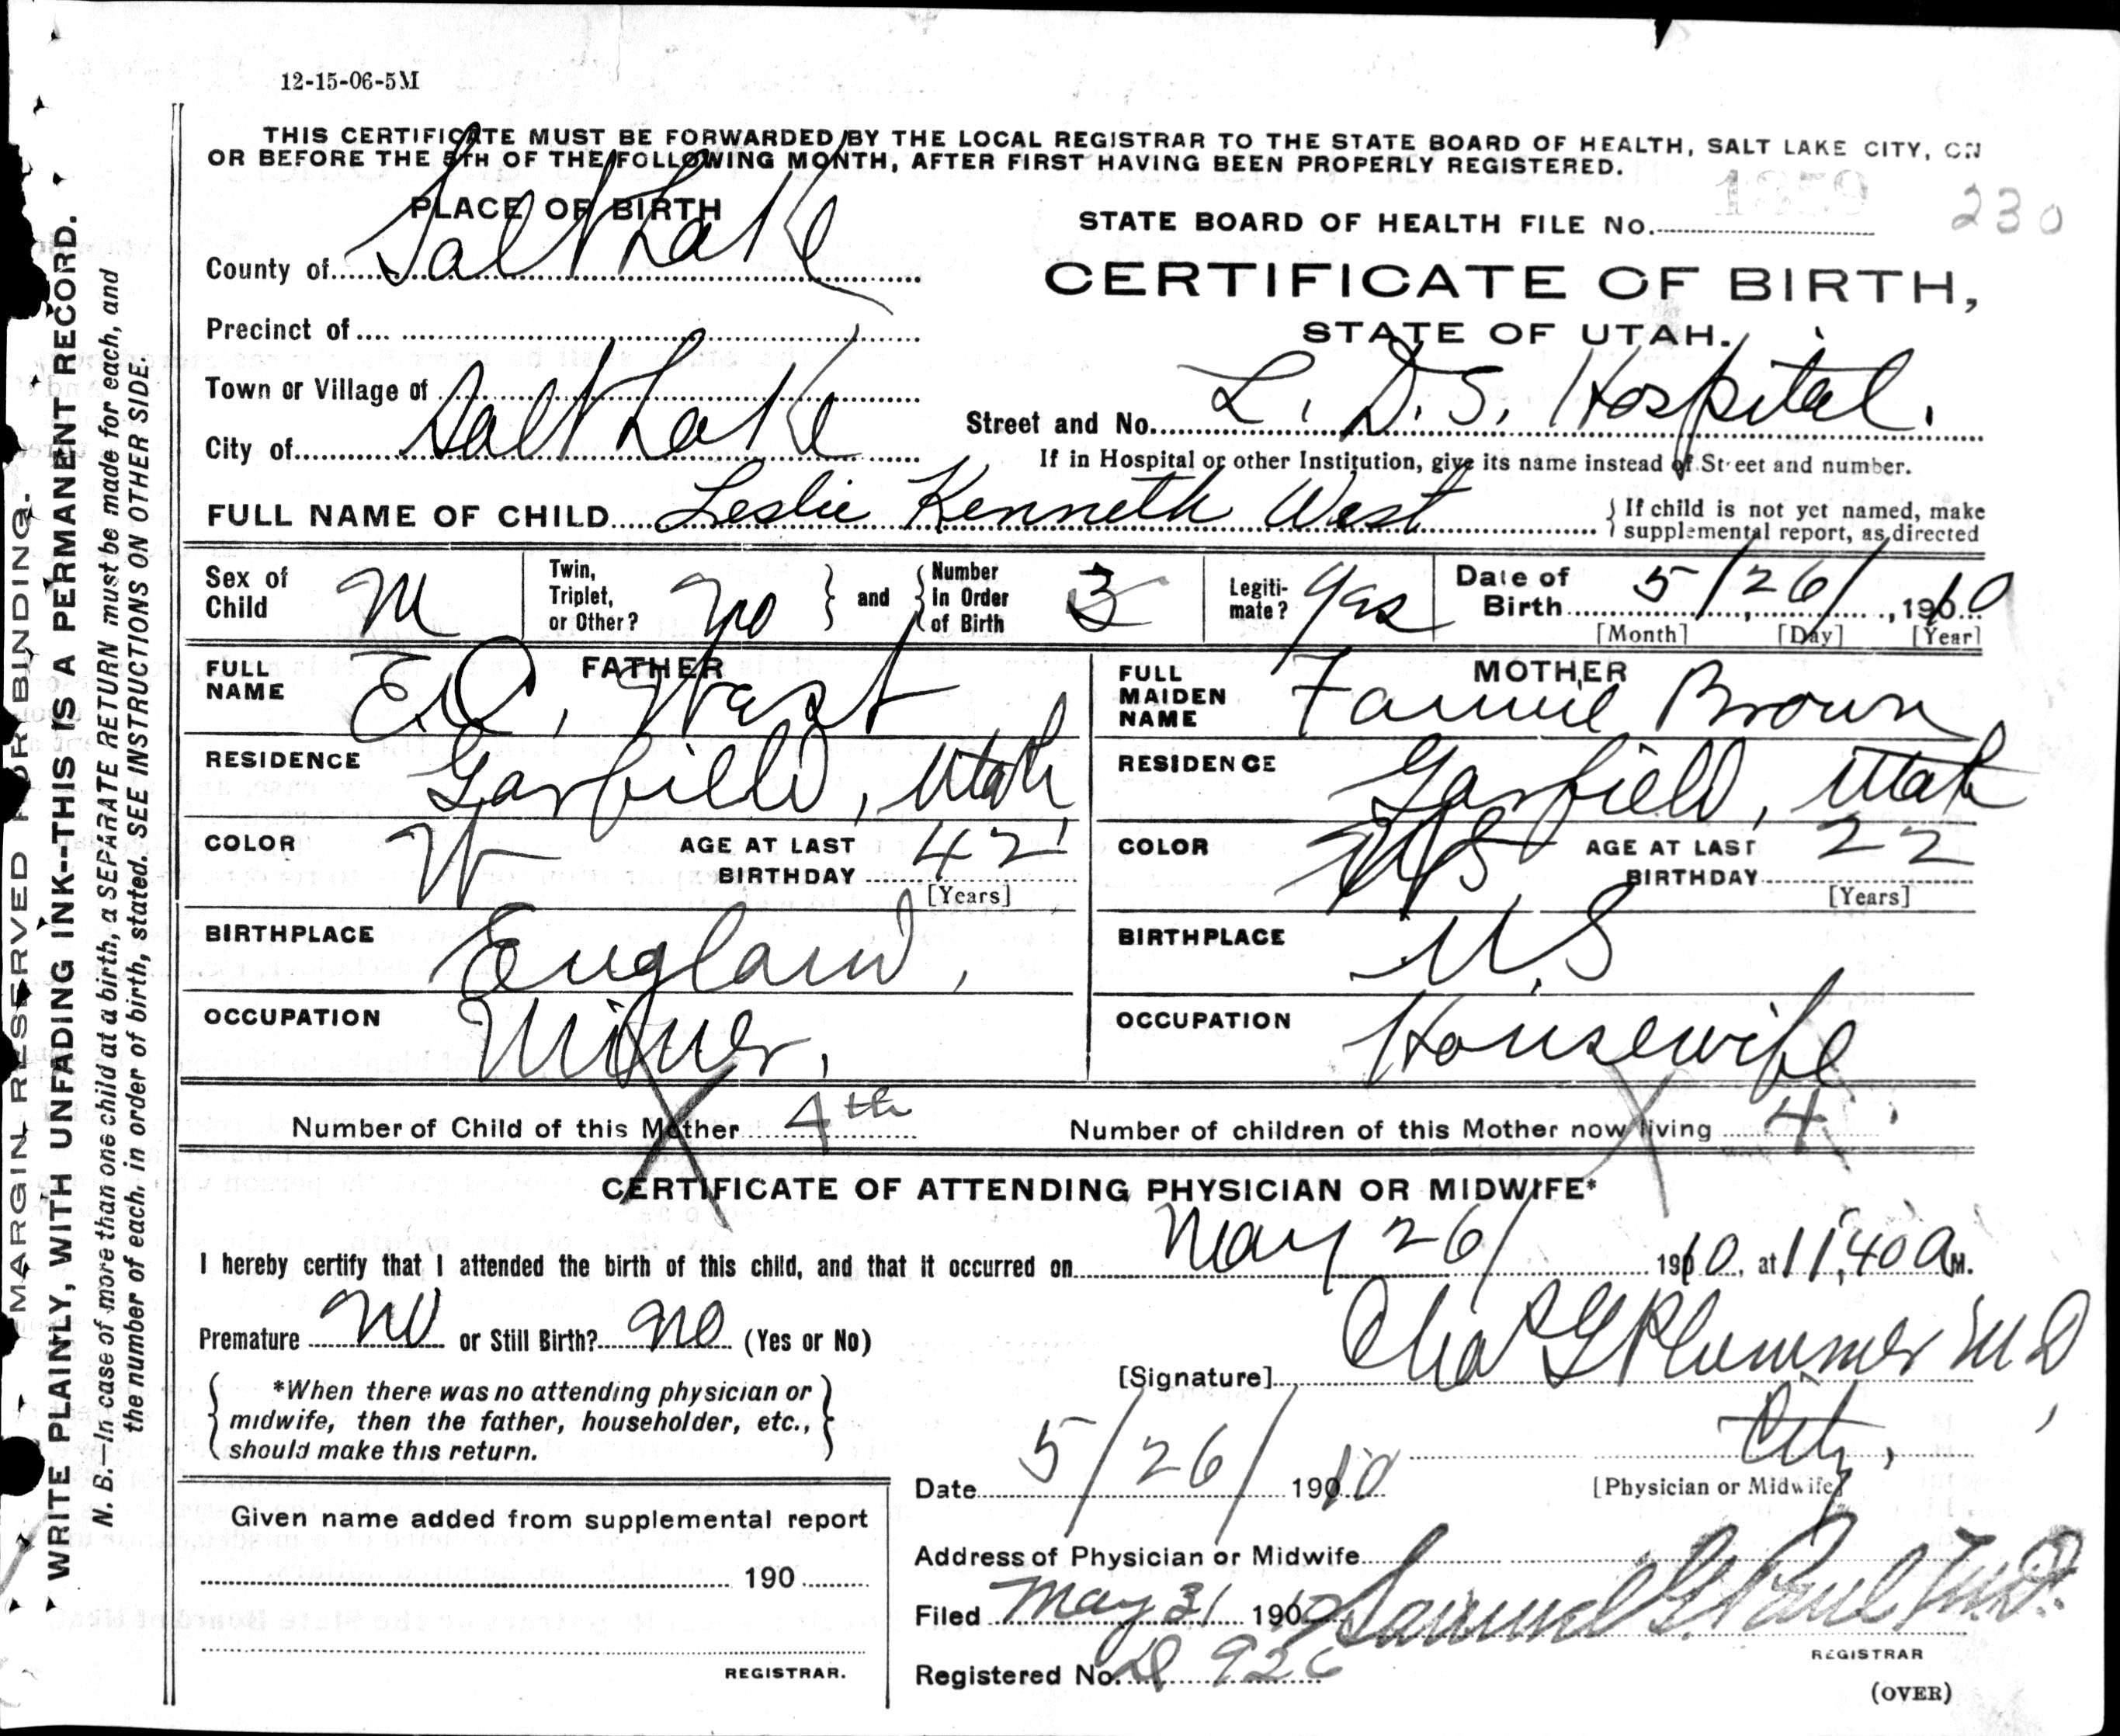 12-15-06-5M
THIS CERTIFICATE MUST BE FORWARDED BY THE LOCAL REGISTRAR TO THE STATE BOARD OF HEALTH, SALT LAKE CITY, ON
OR BEFORE THE 5TH OF THE FOLLOWING MONTH, AFTER FIRST HAVING BEEN PROPERLY REGISTERED.
PLACE OF BIRTH
1359 230
STATE BOARD OF HEALTH FILE No.
County of Salt Lake
CERTIFICATE OF BIRTH,
STATE OF UTAH.
Precinct of
Town or Village of
Street and No. L. D. S. Hospital.
City of Salt Lake
If in Hospital or other Institution, give its name instead of Street and number.
FULL NAME OF CHILD Leslie Kenneth West
If child is not yet named, make
supplemental report, as directed
Sex of Child M
Twin, Triplet, or Other? no and Number in Order of Birth 3
Legitimate? yes
Date of Birth 5/26/1910
[Month] [Day] [Year]
FATHER
FULL NAME E.O. West
RESIDENCE Garfield, Utah
COLOR W AGE AT LAST BIRTHDAY 42
[Years]
BIRTHPLACE England,
OCCUPATION Miner,
MOTHER
FULL MAIDEN NAME Fannie Brown
RESIDENCE Garfield, Utah
COLOR AGE AT LAST BIRTHDAY 22
[Years]
BIRTHPLACE U.S
OCCUPATION Housewife
Number of Child of this Mother 4th Number of children of this Mother now living 4
CERTIFICATE OF ATTENDING PHYSICIAN OR MIDWIFE*
I hereby certify that I attended the birth of this child, and that it occurred on May 26/ 1910, at 11,40 A M.
Premature no or Still Birth? no (Yes or No)
[Signature] Chas G Plummer M D,
*When there was no attending physician or
midwife, then the father, householder, etc.,
should make this return.
City,
Date 5/26/ 1910 [Physician or Midwife]
Given name added from supplemental report
190
REGISTRAR.
Address of Physician or Midwife
Filed May 31 190 Samuel G. Paul M.D.
REGISTRAR
Registered No. D 926
(OVER)
MARGIN RESERVED FOR BINDING.
WRITE PLAINLY, WITH UNFADING INK--THIS IS A PERMANENT RECORD.
N. B.—In case of more than one child at a birth, a SEPARATE RETURN must be made for each, and
the number of each, in order of birth, stated. SEE INSTRUCTIONS ON OTHER SIDE.